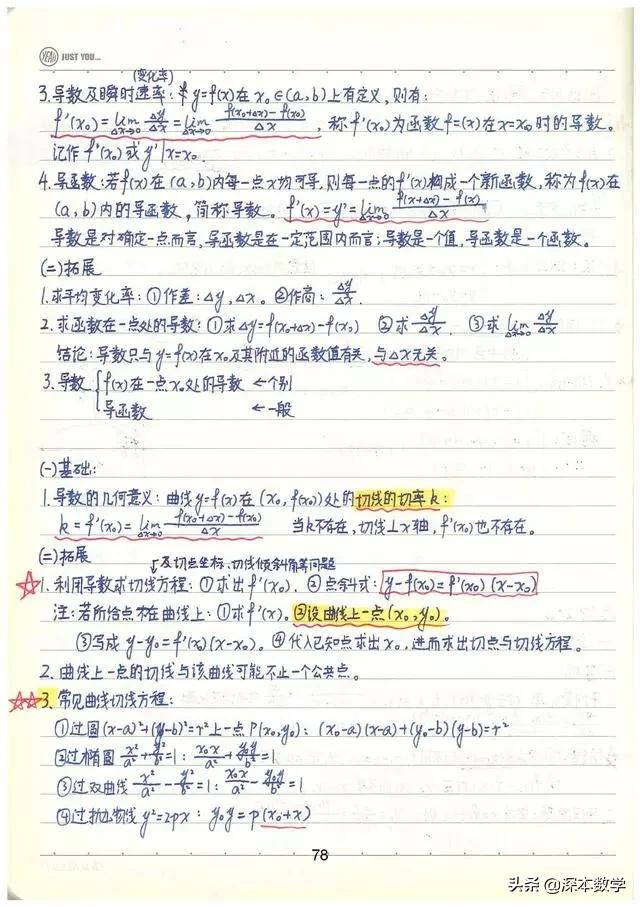 YEAH JUST YOU...
(变化率)
3.导数及瞬时速率:若y=f(x)在x₀∈(a,b)上有定义,则有:
f'(x₀)=lim Δx→0 Δy/Δx=lim Δx→0 (f(x₀+Δx)-f(x₀))/Δx ,称f'(x₀)为函数f=(x)在x=x₀时的导数。
记作f'(x₀)或y'|x=x₀.
4.导函数:若f(x)在(a,b)内每一点x均可导,则每一点的f'(x)构成一个新函数,称为f(x)在
(a,b)内的导函数,简称导数。f'(x)=y'=lim Δx→0 (f(x+Δx)-f(x))/Δx
导数是对确定一点而言,导函数是在一定范围内而言;导数是一个值,导函数是一个函数。
(二)拓展
1.求平均变化率:①作差:Δy,Δx。②作商:Δy/Δx.
2.求函数在一点处的导数:①求Δy=f(x₀+Δx)-f(x₀) ②求Δy/Δx. ③求lim Δx→0 Δy/Δx
结论:导数只与y=f(x)在x₀及其附近的函数值有关,与Δx无关。
3.导数{f(x)在一点x₀处的导数 ←个别
导函数 ←一般
(一)基础:
1.导数的几何意义:曲线y=f(x)在(x₀,f(x₀))处的切线的切率k:
k=f'(x₀)=lim Δx→0 (f(x₀+Δx)-f(x₀))/Δx 当k不存在,切线⊥x轴,f'(x₀)也不存在。
(二)拓展
↓及切点坐标,切线倾斜角等问题
☆1.利用导数求切线方程:①求出f'(x₀). ②点斜式:y-f(x₀)=f'(x₀)(x-x₀)
注:若所给点不在曲线上:①求f'(x)。②设曲线上一点(x₀,y₀)。
③写成y-y₀=f'(x₀)(x-x₀)。④代入已知点求出x₀,进而求出切点与切线方程。
2.曲线上一点的切线与该曲线可能不止一个公共点。
☆☆3.常见曲线切线方程:
①过圆(x-a)²+(y-b)²=r²上一点P(x₀,y₀):(x₀-a)(x-a)+(y₀-b)(y-b)=r²
②过椭圆x²/a²+y²/b²=1:x₀x/a²+y₀y/b²=1
③过双曲线x²/a²-y²/b²=1:x₀x/a²-y₀y/b²=1
④过抛物线y²=2px:y₀y=p(x₀+x)
78
头条@深本数学